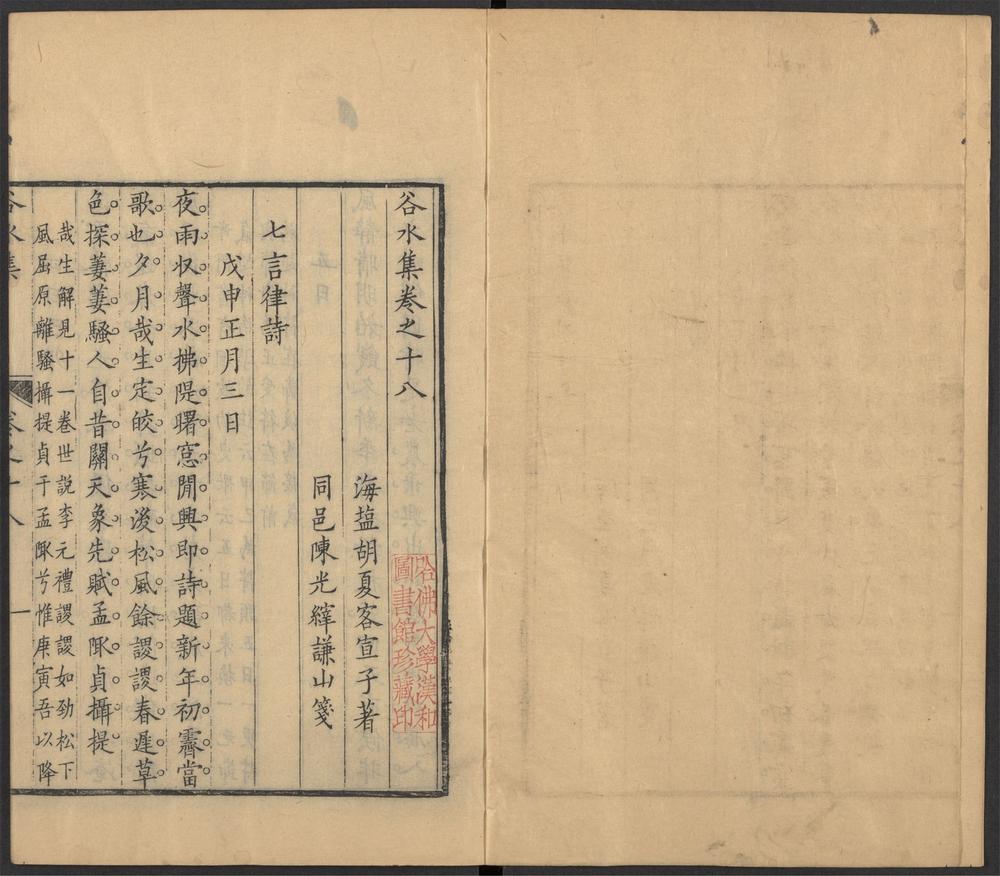 谷水集卷之十八
海塩胡夏客宣子著
同邑陳光縡謙山箋
七言律詩
戊申正月三日
夜雨收聲水拂隄曙窓閒興即詩題新年初霽當
歌也夕月哉生定皎兮寒後松風餘謖謖春遲草
色探萋萋騷人自昔關天象先賦孟陬貞攝提
哉生解見十一卷世說李元禮謖謖如勁松下
風屈原離騷攝提貞于孟陬兮惟庚寅吾以降
谷水集 卷之十八 一
哈佛大學漢和
圖書館珍藏印